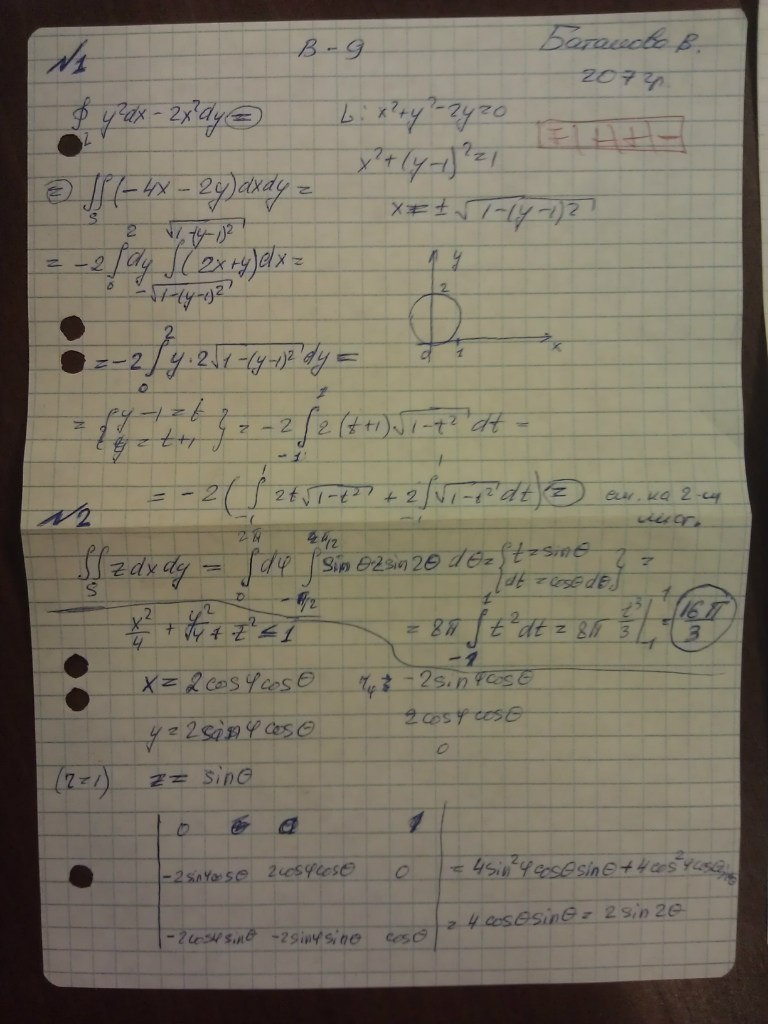 №1
В - 9
Баташова В.
207 гр.
∮_L y²dx - 2x²dy =
L: x² + y² - 2y = 0
x² + (y-1)² = 1
x = ± √(1-(y-1)²)
= ∬_S (-4x - 2y)dxdy =
= -2 ∫_0^2 dy ∫_{-√(1-(y-1)²)}^{√(1-(y-1)²)} (2x+y)dx =
y
2
0 1 x
= -2 ∫_0^2 y·2√(1-(y-1)²) dy =
= { y-1 = t
y = t+1 } = -2 ∫_{-1}^1 2(t+1)√(1-t²) dt =
= -2 ( ∫_{-1}^1 2t√(1-t²) + 2∫_{-1}^1 √(1-t²) dt ) = см. на 2-м
лист.
№2
∬_S z dxdy = ∫_0^{2π} dφ ∫_{-π/2}^{π/2} sinθ·2sin2θ dθ = { t = sinθ
dt = cosθ dθ } =
x²/4 + y²/4 + z² ≤ 1
= 8π ∫_{-1}^1 t²dt = 8π t³/3 |_{-1}^1 = 16π/3
x = 2cosφcosθ
r_φ = -2sinφcosθ
2cosφcosθ
0
y = 2sinφcosθ
(r=1) z = sinθ
| 0 0 1 |
| -2sinφcosθ 2cosφcosθ 0 | = 4sin²φcosθsinθ + 4cos²φcosθsinθ
| -2cosφsinθ -2sinφsinθ cosθ | = 4cosθsinθ = 2sin2θ